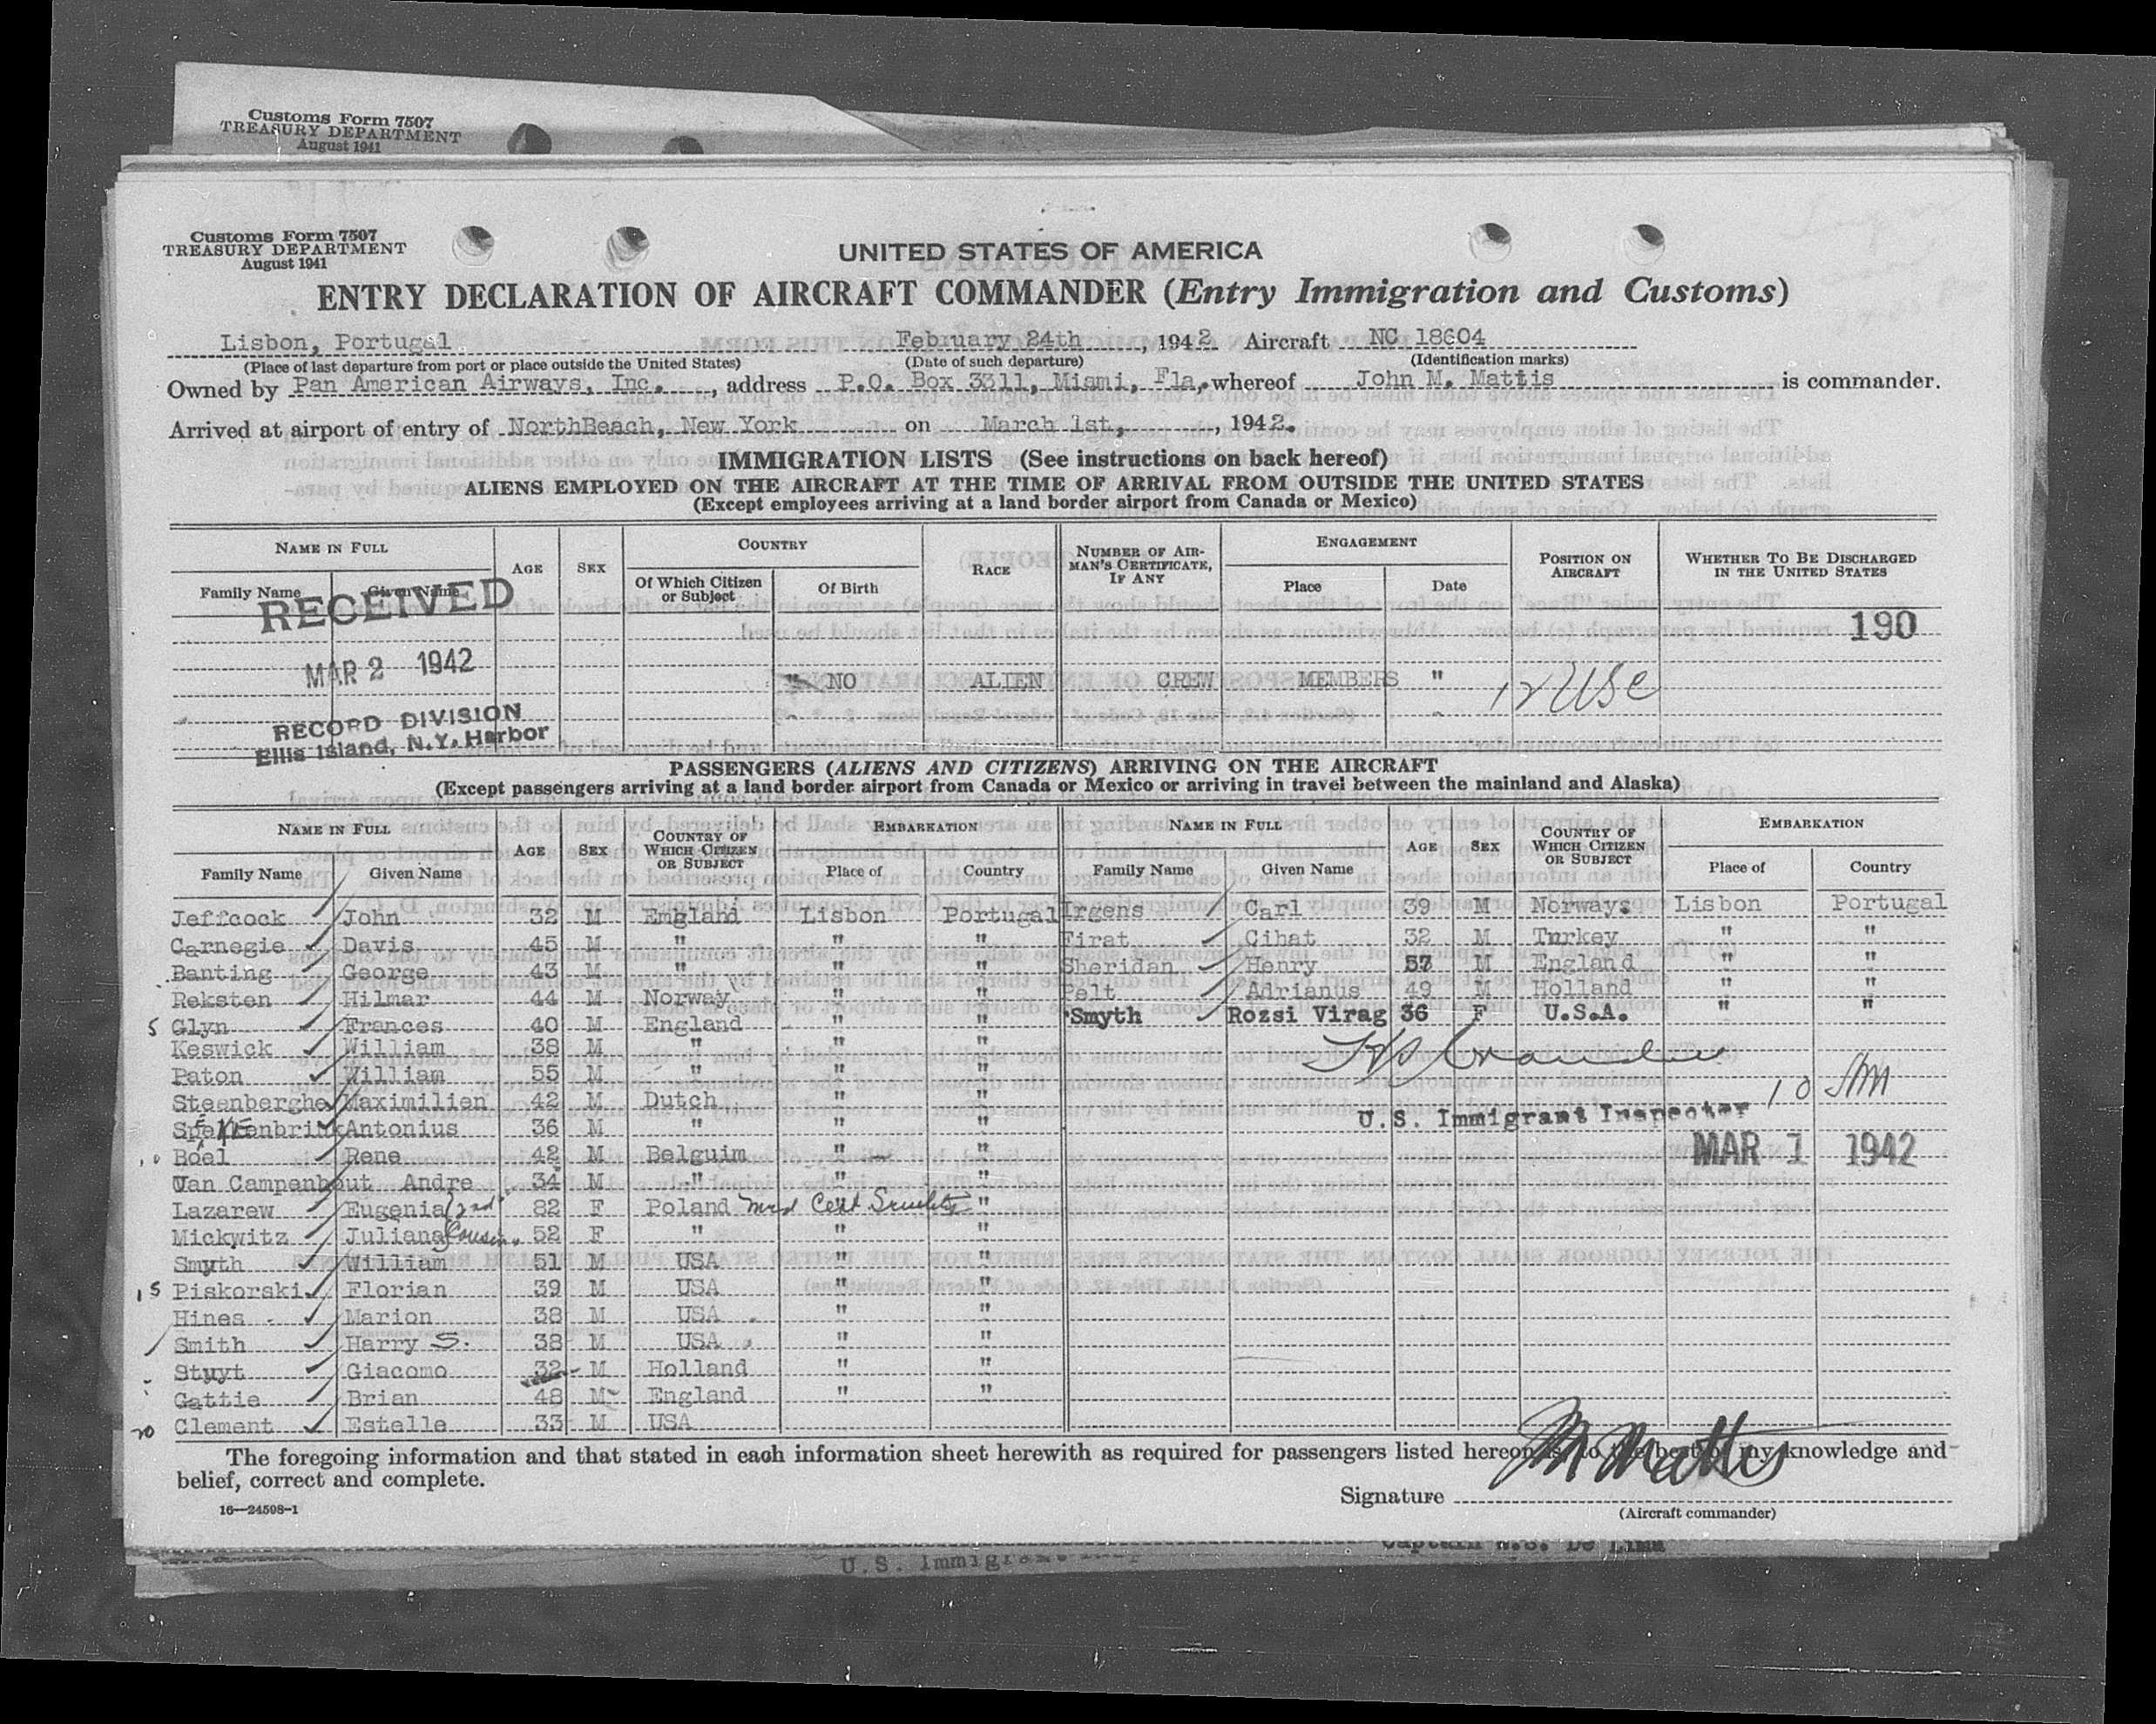 Customs Form 7507
TREASURY DEPARTMENT
August 1941
Customs Form 7507
TREASURY DEPARTMENT
August 1941
UNITED STATES OF AMERICA
ENTRY DECLARATION OF AIRCRAFT COMMANDER (Entry Immigration and Customs)
Lisbon, Portugal February 24th, 1942 Aircraft NC 18604
(Place of last departure from port or place outside the United States) (Date of such departure) (Identification marks)
Owned by Pan American Airways, Inc., address P.O. Box 3311, Miami, Fla, whereof John M. Mattis is commander.
Arrived at airport of entry of NorthBeach, New York on March 1st, , 1942.
IMMIGRATION LISTS (See instructions on back hereof)
ALIENS EMPLOYED ON THE AIRCRAFT AT THE TIME OF ARRIVAL FROM OUTSIDE THE UNITED STATES
(Except employees arriving at a land border airport from Canada or Mexico)
NAME IN FULL AGE SEX COUNTRY RACE NUMBER OF AIRMAN'S CERTIFICATE, IF ANY ENGAGEMENT POSITION ON AIRCRAFT WHETHER TO BE DISCHARGED IN THE UNITED STATES
Family Name Given Name Of Which Citizen or Subject Of Birth Place Date
RECEIVED
190
MAR 2 1942
" NO ALIEN CREW MEMBERS " 12 USC
RECORD DIVISION
Ellis Island, N.Y. Harbor
PASSENGERS (ALIENS AND CITIZENS) ARRIVING ON THE AIRCRAFT
(Except passengers arriving at a land border airport from Canada or Mexico or arriving in travel between the mainland and Alaska)
NAME IN FULL AGE SEX COUNTRY OF WHICH CITIZEN OR SUBJECT EMBARKATION NAME IN FULL AGE SEX COUNTRY OF WHICH CITIZEN OR SUBJECT EMBARKATION
Family Name Given Name Place of Country Family Name Given Name Place of Country
Jeffcock John 32 M England Lisbon Portugal Irgens Carl 39 M Norway. Lisbon Portugal
Carnegie Davis 45 M " " " Firat Cihat 32 M Turkey " "
Banting George 43 M " " " Sheridan Henry 57 M England " "
Reksten Hilmar 44 M Norway " " Pelt Adrianus 49 M Holland " "
5 Glyn Frances 40 M England " " Smyth Rozsi Virag 36 F U.S.A. " "
Keswick William 38 M " " "
Paton William 55 M " " "
Steenberghe Maximilien 42 M Dutch " " 10
U.S. Immigrant Inspector
Spekenbrink Antonius 36 M " " "
10 Boel Rene 42 M Belguim " " MAR 1 1942
Van Campenhout Andre 34 M " " "
Lazarew Eugenia 2nd 82 F Poland Med Cert "
Mickwitz Juliana Cousin 52 F " " "
Smyth William 51 M USA " "
15 Piskorski Florian 39 M USA " "
Hines Marion 38 M USA " "
Smith Harry S. 38 M USA " "
Stuyt Giacomo 32 M Holland " "
Gattie Brian 48 M England " "
20 Clement Estelle 33 M USA
The foregoing information and that stated in each information sheet herewith as required for passengers listed hereon is, to the best of my knowledge and
belief, correct and complete.
J M Mattis
Signature
16—24598-1 (Aircraft commander)
U.S. Immigrant Insp
Captain H.S. De Lima